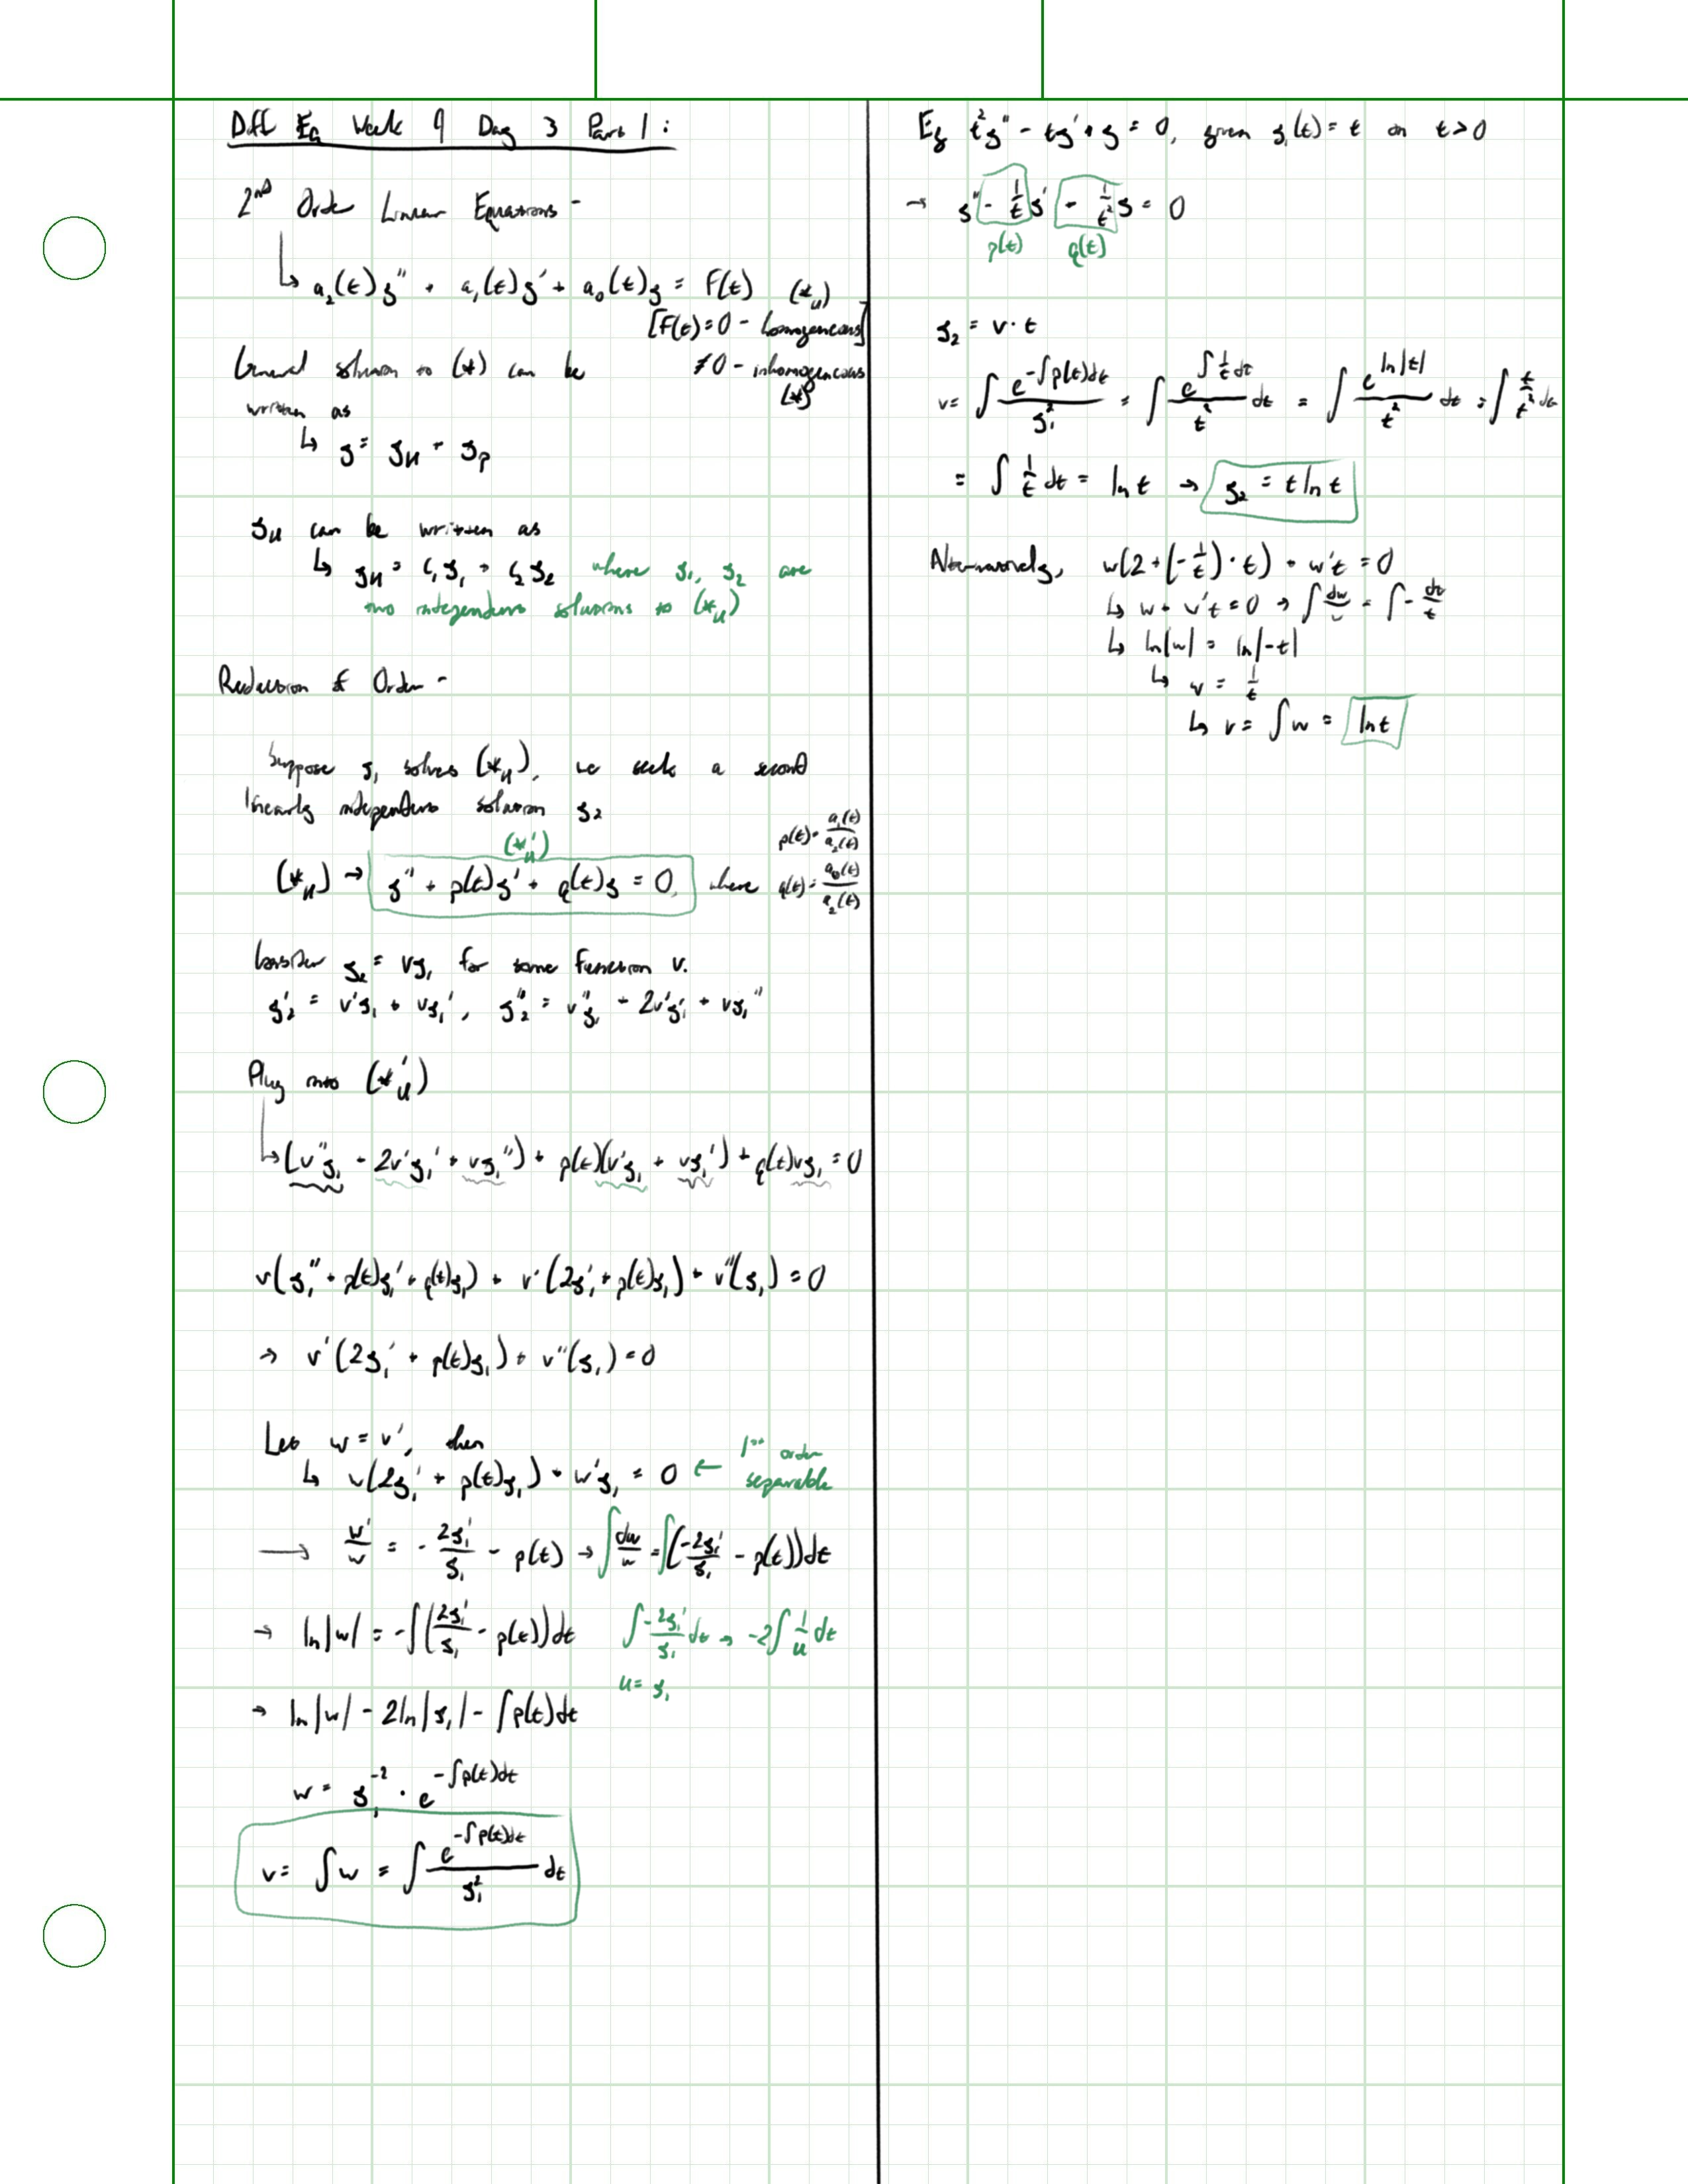 Diff Eq Week 9 Day 3 Part 1:
2nd Order Linear Equations -
↳ a₂(t)y'' + a₁(t)y' + a₀(t)y = F(t) (*H)
[F(t)=0 - homogeneous]
≠0 - inhomogeneous
(*)
General solution to (*) can be
written as
↳ y = yH + yp
yH can be written as
↳ yH = c₁y₁ + c₂y₂ where y₁, y₂ are
two independent solutions to (*H)
Reduction of Order -
Suppose y₁ solves (*H), we seek a second
linearly independent solution y₂
(*H')
(*H) → y'' + p(t)y' + q(t)y = 0, where p(t) = a₁(t)/a₂(t)
q(t) = a₀(t)/a₂(t)
Consider y₂ = vy₁ for some function v.
y₂' = v'y₁ + vy₁', y₂'' = v''y₁ + 2v'y₁' + vy₁''
Plug into (*H')
↳ (v''y₁ + 2v'y₁' + vy₁'') + p(t)(v'y₁ + vy₁') + q(t)vy₁ = 0
v(y₁'' + p(t)y₁' + q(t)y₁) + v'(2y₁' + p(t)y₁) + v''(y₁) = 0
→ v'(2y₁' + p(t)y₁) + v''(y₁) = 0
Let w = v', then
↳ w(2y₁' + p(t)y₁) + w'y₁ = 0 ← 1st order
separable
→ w'/w = - 2y₁'/y₁ - p(t) → ∫ dw/w = ∫(-2y₁'/y₁ - p(t))dt
→ ln|w| = -∫(2y₁'/y₁ - p(t))dt ∫ -2y₁'/y₁ dt → -2∫ 1/u dt
u = y₁
→ ln|w| - 2ln|y₁| - ∫p(t)dt
w = y₁⁻² · e^(-∫p(t)dt)
v = ∫w = ∫ e^(-∫p(t)dt)/y₁² dt
Eg t²y'' - ty' + y = 0, given y₁(t) = t on t > 0
→ y'' - 1/t y' + 1/t² y = 0
p(t) q(t)
y₂ = v · t
v = ∫ e^(-∫p(t)dt)/y₁² = ∫ e^(∫ 1/t dt)/t² dt = ∫ e^(ln|t|)/t² dt = ∫ t/t² dt
= ∫ 1/t dt = ln t → y₂ = t ln t
Alternatively, w(2 + (-1/t) · t) + w't = 0
↳ w + w't = 0 → ∫ dw/w = ∫ - dt/t
↳ ln|w| = ln|-t|
↳ w = 1/t
↳ v = ∫w = ln t